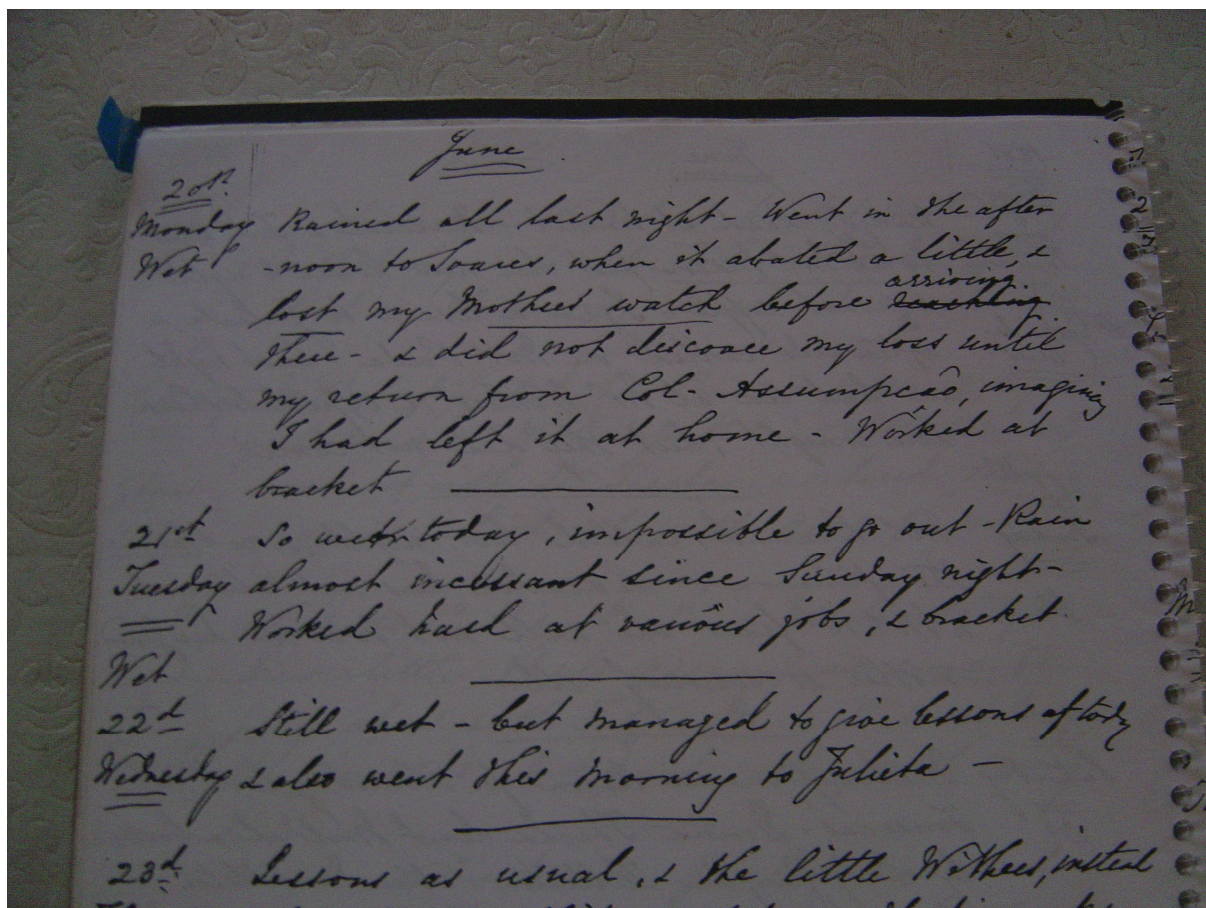 June
20th
Monday Rained all last night - Went in the after
Wet -noon to Soares, when it abated a little, &
lost my Mothers watch before reaching arriving
there - & did not discover my loss until
my return from Col- Assumpcaô, imagining
I had left it at home - Worked at
bracket
21st So wet today, impossible to go out - Rain
Tuesday almost incessant since Sunday night -
Worked hard at various jobs, & bracket
Wet
22d Still wet - but managed to give lessons of today
Wednesday & also went this morning to Julieta -
23d Lessons as usual, & the little Withers, instead